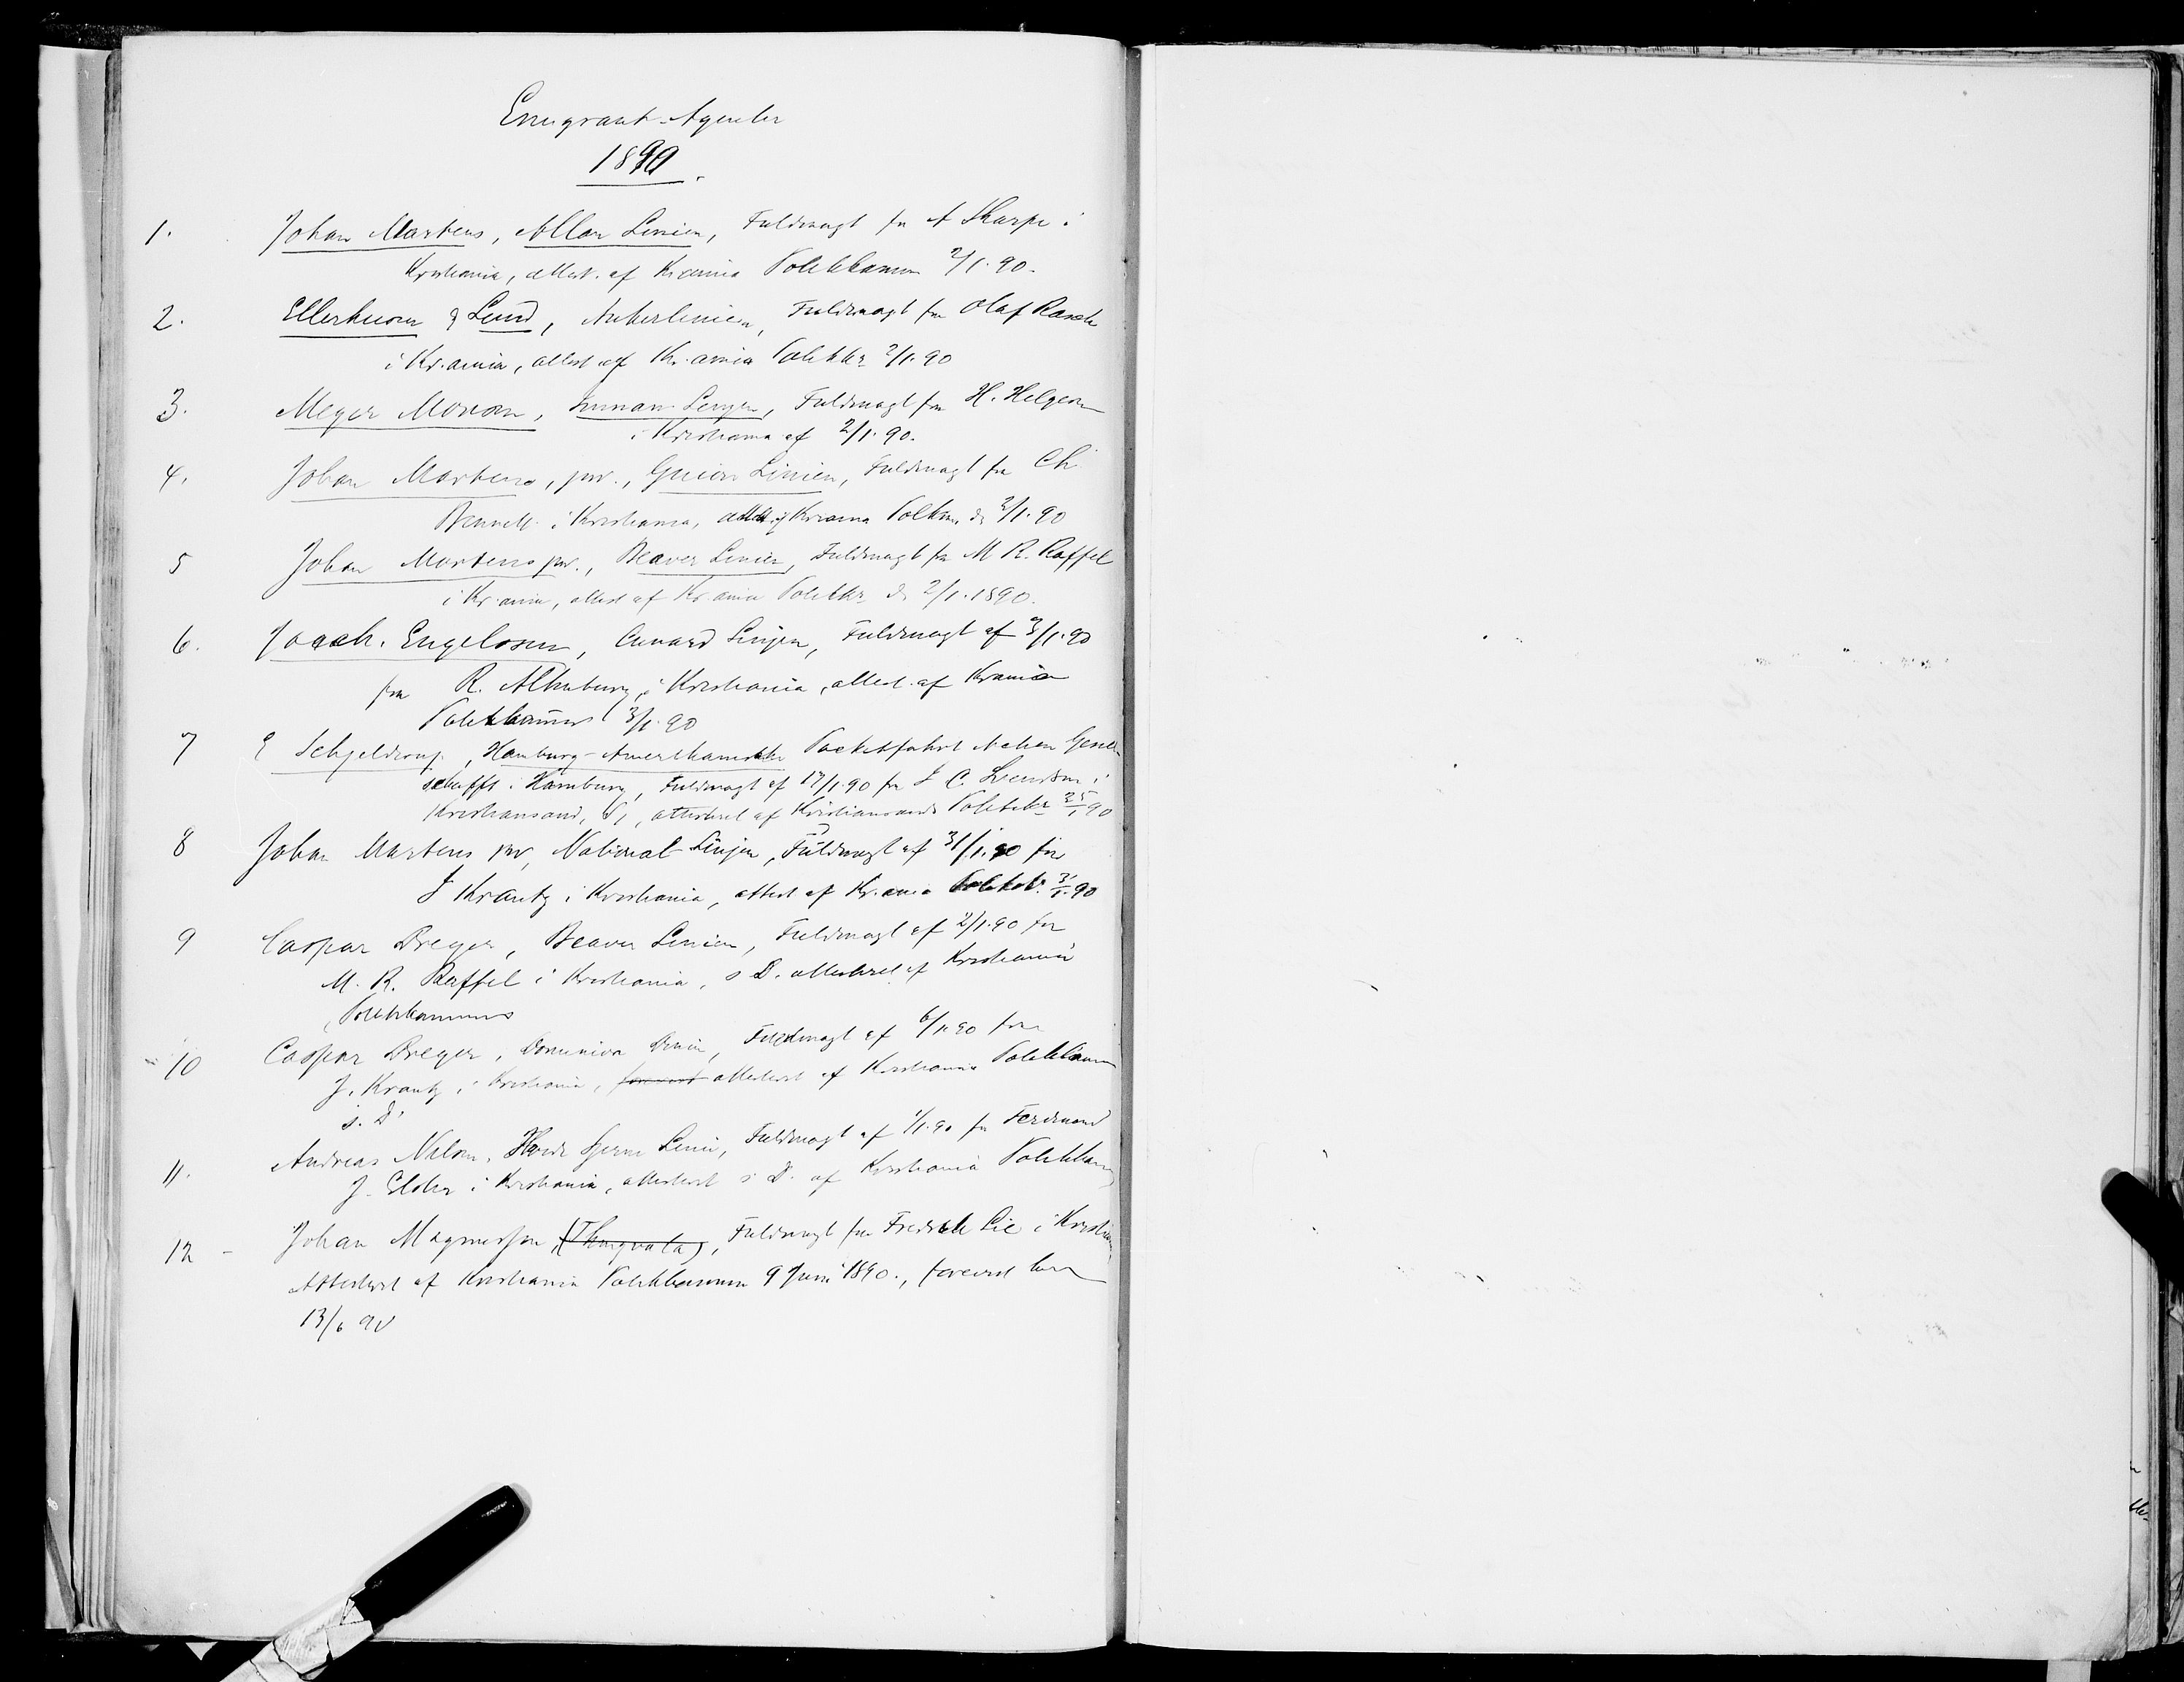 Emigrant-Agenter
1890.
1. Johan Martens, Allan Linien, Fuldmagt fra A Sharpe i
Kristiania, attest. af Kr.ania Politikammer 2/1.90.
2. Ellerhusen & Lund, Ankerlinien, Fuldmagt fra Olaf Rasch
i Kr.ania, attest af Kr.ania Politikr 2/1.90
3. Meyer Monsen, Inman Linjen, Fuldmagt fra H. Helgesen
i Kristiania af 2/1.90.
4. Johan Martens, jun., Guion Linien, Fuldmagt fra Ch.
Bennett i Kristiania, attest. af Krania Politikr. d. 2/1.90
5 Johan Martens jun., Beaver Linien, Fuldmagt fra M R. Raffel
i Kr.ania, attest af Kr.ania Politikr d. 2/1.1890.
6. Joach. Engelsen, Cunard Linjen, Fuldmagt af 3/1.90
fra R. Altenburg, i Kristiania, attest. af Krania
Politikammer 3/1.90
7 E Schjeldrup, Hamburg-Amerikanische Packetfahrt Actien Gesell-
schafft i Hamburg, Fuldmagt af 17/1.90 fra J C. Svendsen i
Kristiansand, S, attesteret af Kristiansands Politikr 25/1 90
8 Johan Martens jun, National-Linjen, Fuldmagt af 31/1.90 fra
J Krantz i Kristiania, attest af Kr.ania Politik. 31/1.90
9 Caspar Dreyer, Beaver Linien, Fuldmagt af 2/1.90 fra
M. R. Raffel i Kristiania, s D. attesteret af Kristiania
Politikammer
10 Caspar Dreyer, Dominion Linien, Fuldmagt af 6/1.90 fra
J. Krantz, i Kristiania, forevist attesteret af Kristiania Politikammer
s. D.
11. Andreas Nilsen, Hvide Stjerne Linie, Fuldmagt af 1/1.90 fra Ferdinand
J. Elster i Kristiania, attesteret s D. af Kristiania Politikam
12 - Johan Magnussen, (Thingvalla), Fuldmagt fra Fredrik Lie i Kristiania,
Attesteret af Kristiania Politikammer 9 Juni 1890., forevist her
13/6 90